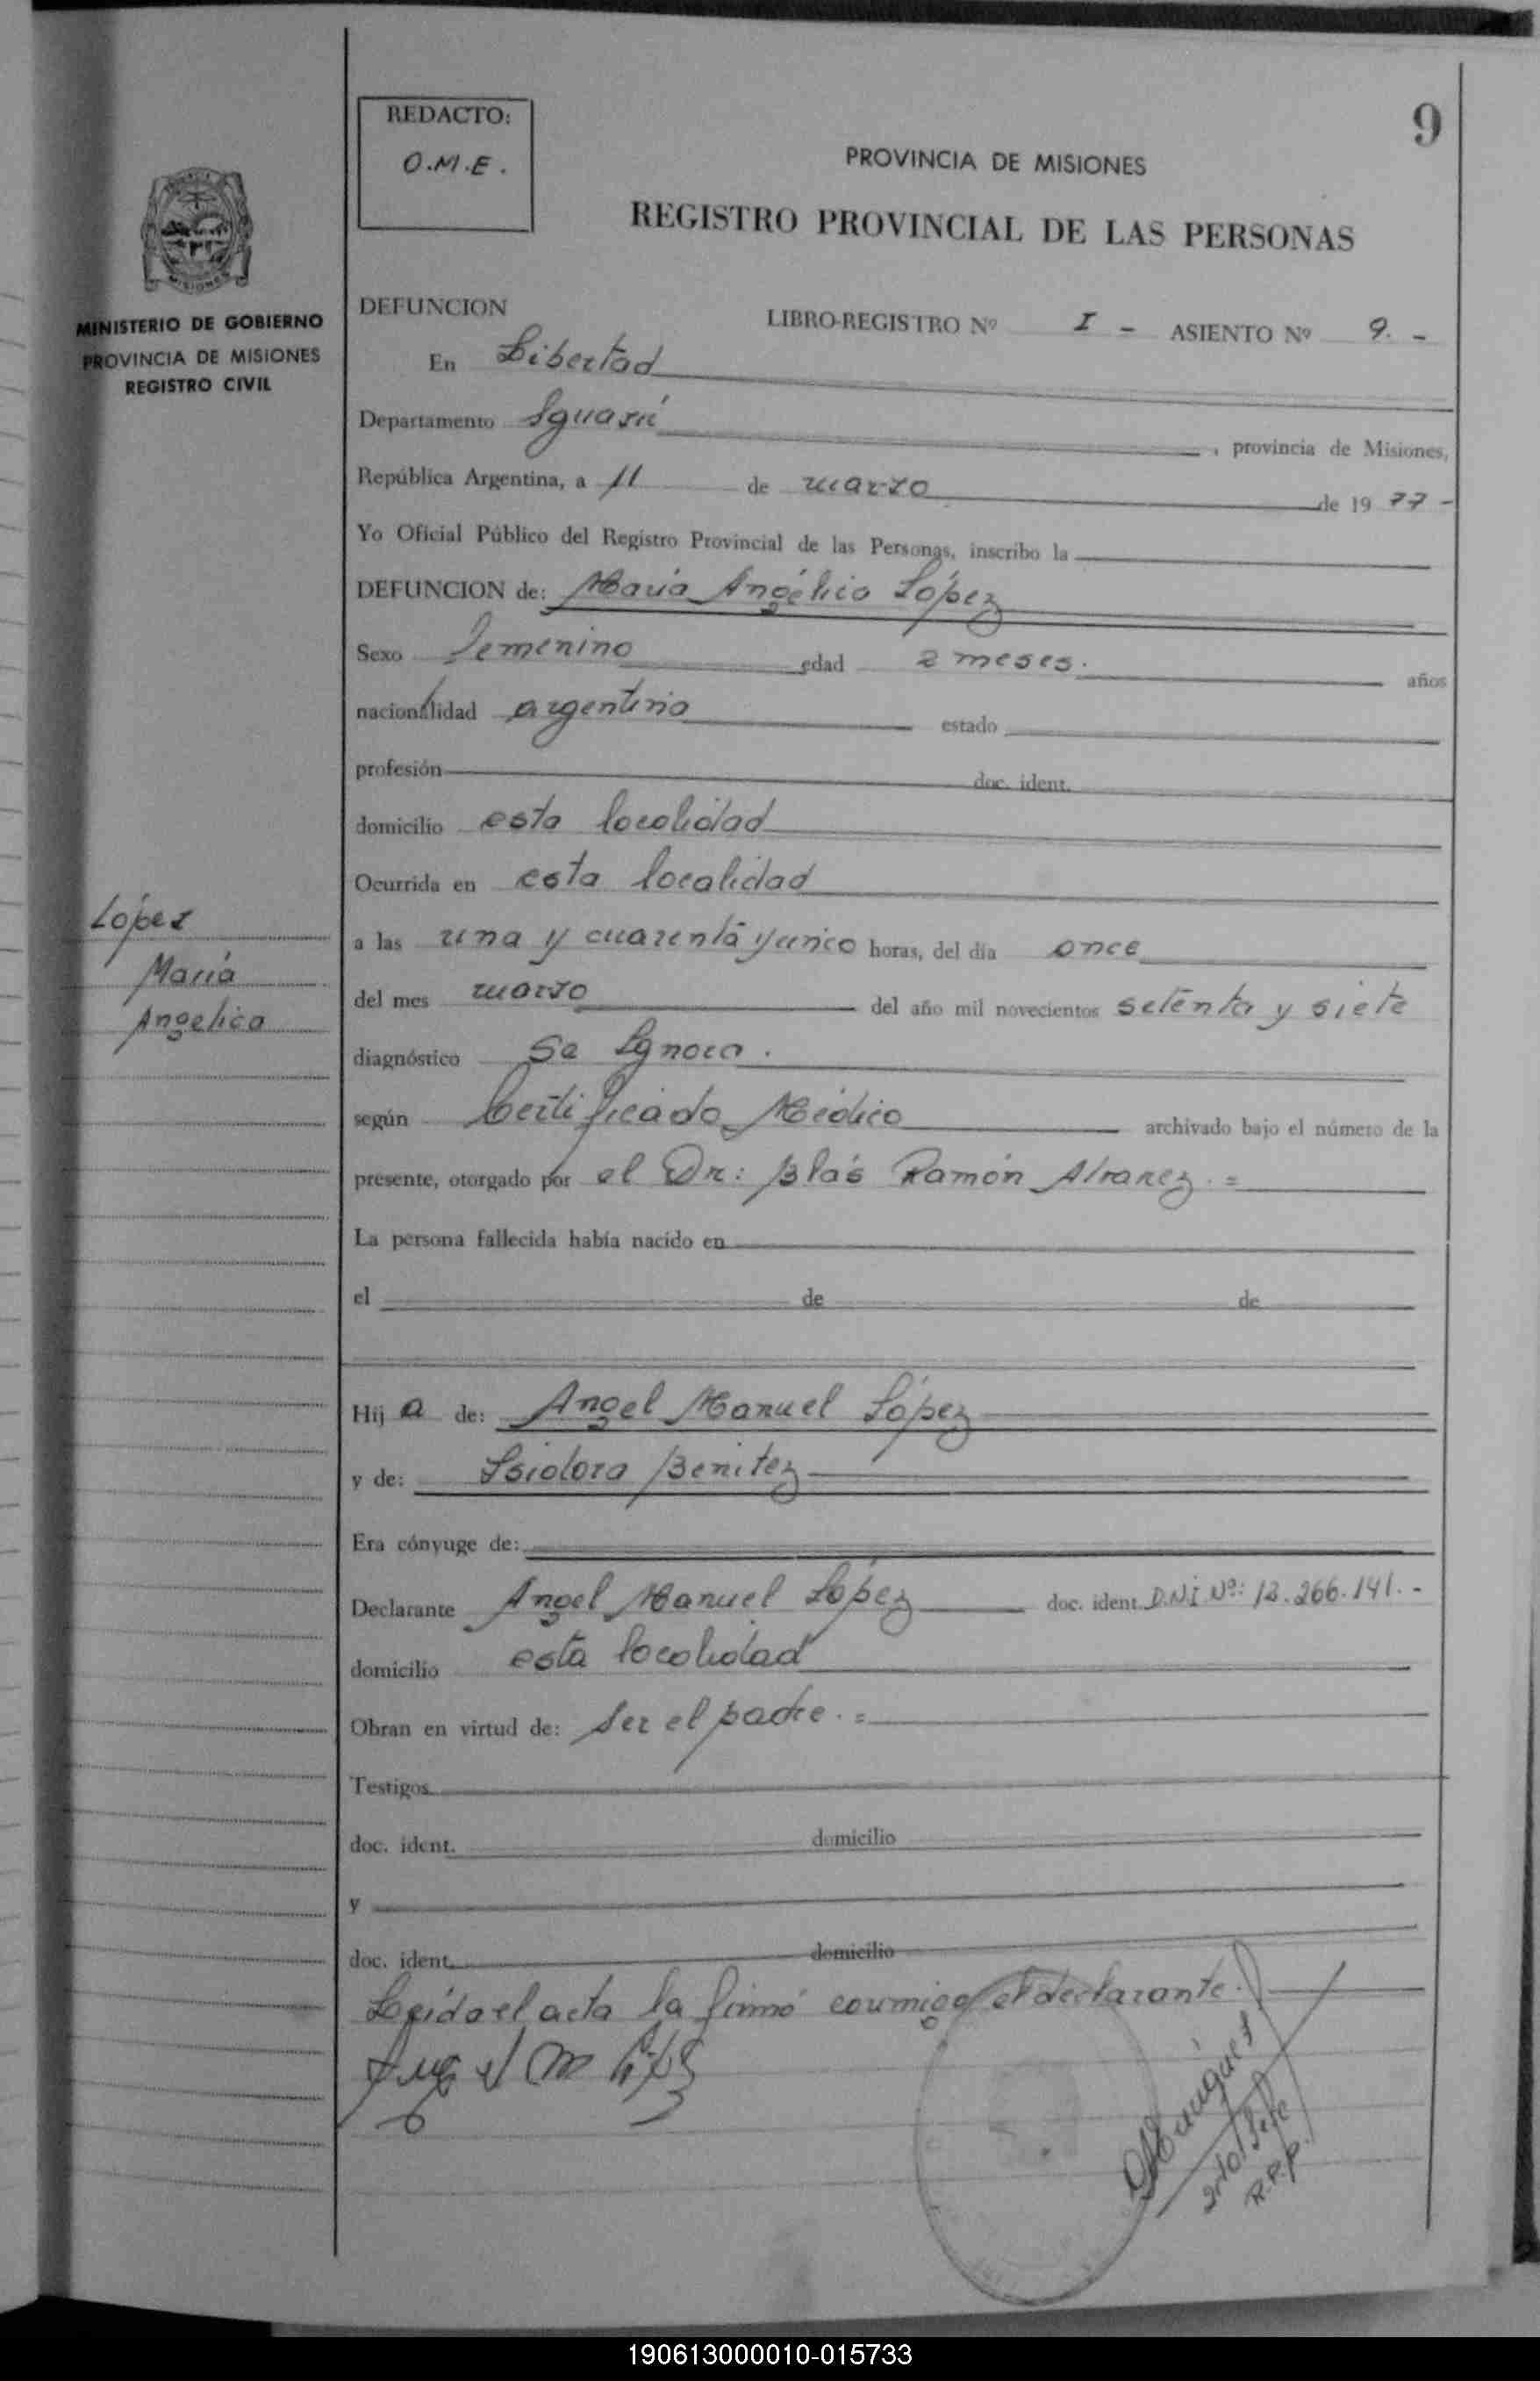 9
REDACTO:
O.M.E.
PROVINCIA DE MISIONES
REGISTRO PROVINCIAL DE LAS PERSONAS
MISIONES
MINISTERIO DE GOBIERNO
PROVINCIA DE MISIONES
REGISTRO CIVIL
DEFUNCION LIBRO-REGISTRO Nº I - ASIENTO Nº 9. -
En Libertad
Departamento Iguasú , provincia de Misiones,
República Argentina, a 11 de marzo de 19 77 -
Yo Oficial Público del Registro Provincial de las Personas, inscribo la
DEFUNCION de: María Angélica López
Sexo femenino edad 2 meses. años
nacionalidad argentina estado
profesión doc. ident.
domicilio esta localidad
Ocurrida en esta localidad
López
María
Angelica
a las una y cuarenta y cinco horas, del día once
del mes marzo del año mil novecientos setenta y siete
diagnóstico Se Ignora.
según Certificado Médico archivado bajo el número de la
presente, otorgado por el Dr: Blás Ramón Alvarez. =
La persona fallecida había nacido en
el de de
Hij a de: Angel Manuel López
y de: Isidora Benitez
Era cónyuge de:
Declarante Angel Manuel López doc. ident. D.N.I Nº: 12.266.141. -
domicilio esta localidad
Obran en virtud de: ser el padre. =
Testigos
doc. ident. domicilio
y
doc. ident. domicilio
Leída el acta la firmó conmigo el declarante.
R.P.P.
190613000010-015733